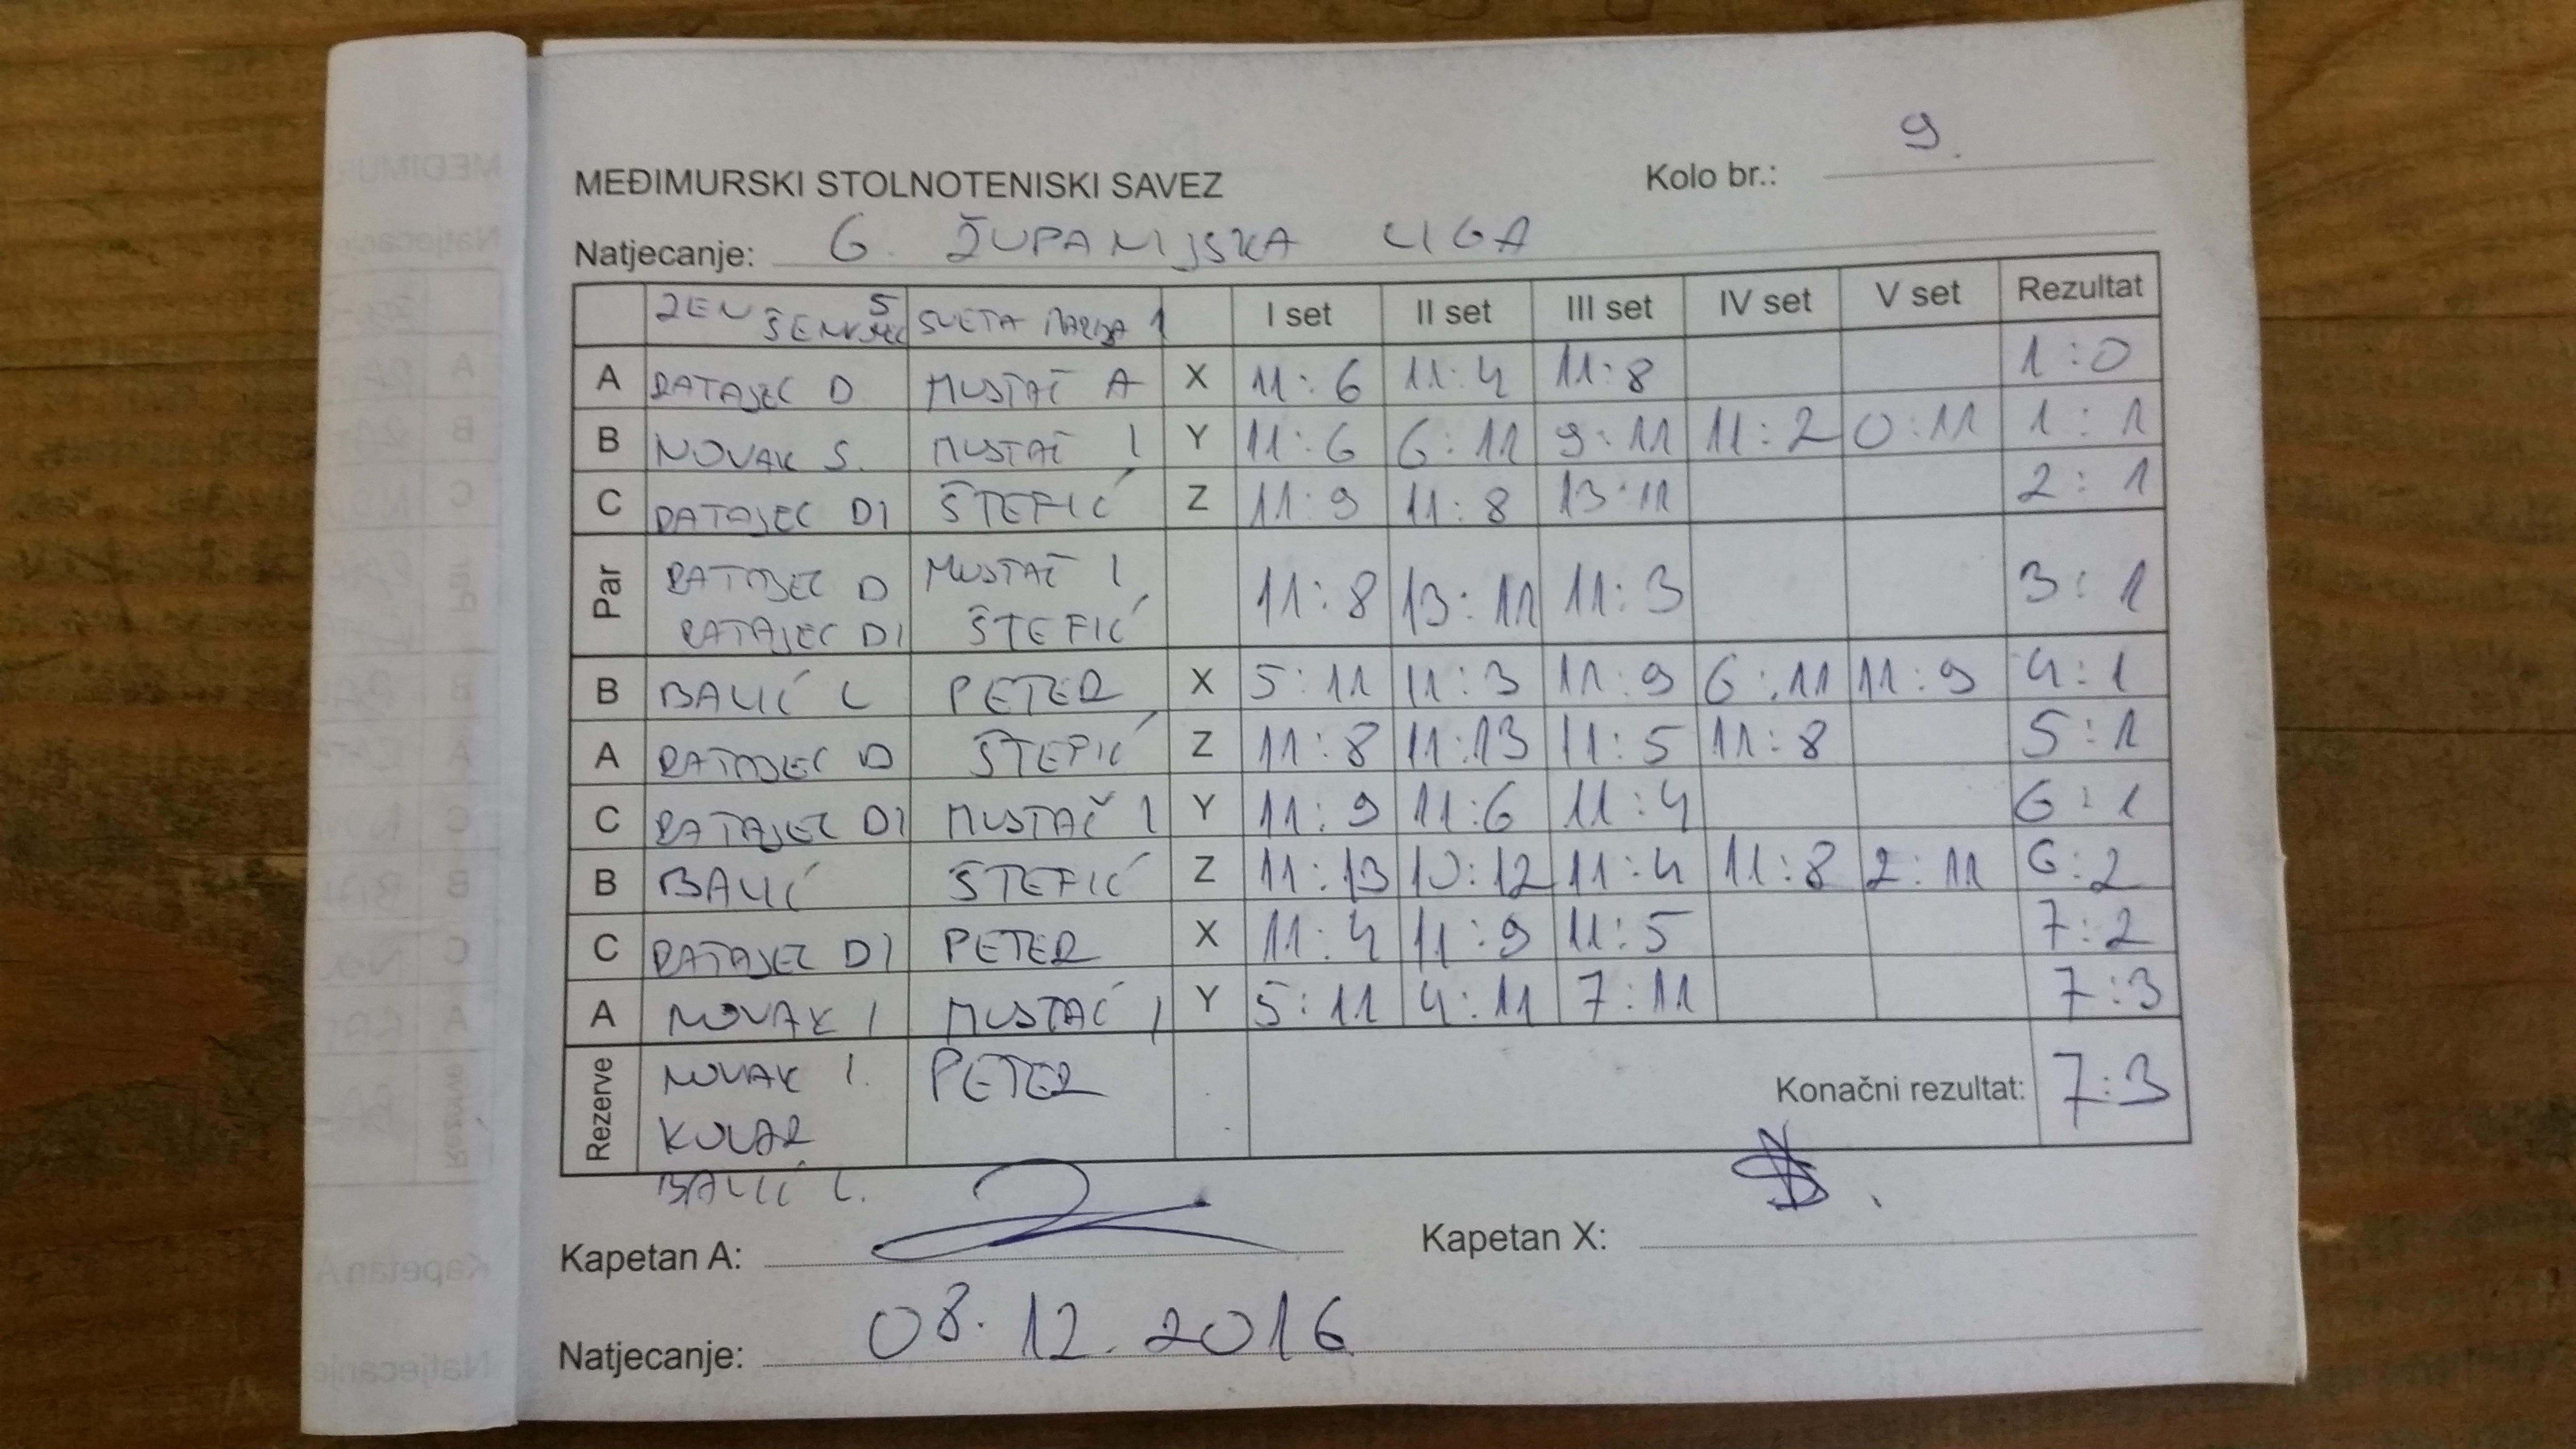 Kolo br.: 9.
MEĐIMURSKI STOLNOTENISKI SAVEZ
Natjecanje: 6. ŽUPANIJSKA LIGA
ZEN 5 ŠENKOVEC SVETA MARIJA 1 I set II set III set IV set V set Rezultat
A RATAJEC D MUSTAČ A X 11:6 11:4 11:8 1:0
B NOVAK S. MUSTAČ I Y 11:6 6:11 9:11 11:2 0:11 1:1
C RATAJEC DI ŠTEFIĆ Z 11:9 11:8 13:11 2:1
Par RATAJEC D MUSTAČ I 11:8 13:11 11:3 3:1
RATAJEC DI ŠTEFIĆ
B BALIĆ L PETER X 5:11 11:3 11:9 6:11 11:9 4:1
A RATAJEC D ŠTEFIĆ Z 11:8 11:13 11:5 11:8 5:1
C RATAJEC DI MUSTAČ I Y 11:9 11:6 11:4 6:1
B BALIĆ ŠTEFIĆ Z 11:13 10:12 11:4 11:8 2:11 6:2
C RATAJEC DI PETER X 11:4 11:9 11:5 7:2
A NOVAK I MUSTAČ I Y 5:11 4:11 7:11 7:3
Rezerve NOVAK I. PETER Konačni rezultat: 7:3
KOLAR
BALIĆ L.
Kapetan A: Kapetan X:
Natjecanje: 08.12.2016